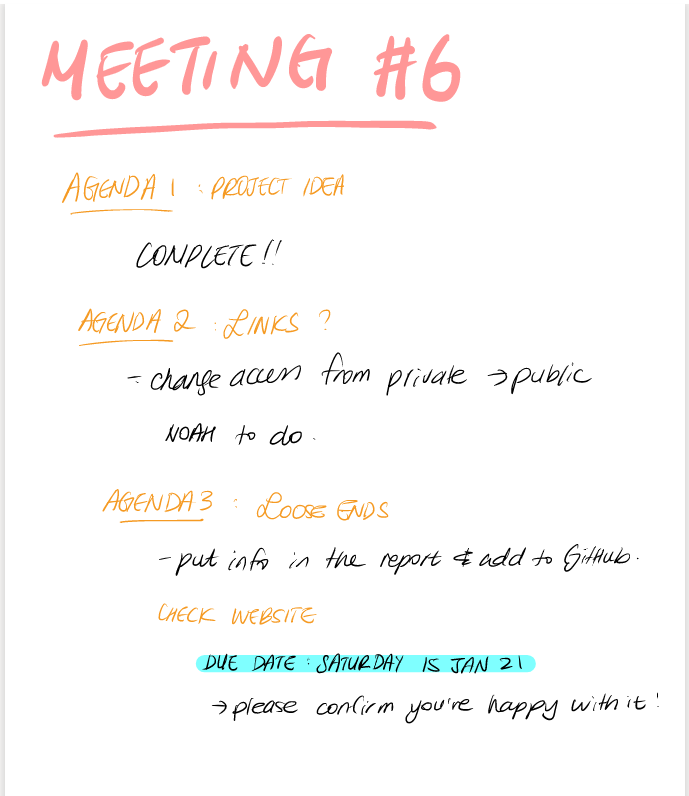 MEETING #6
AGENDA 1 : PROJECT IDEA
COMPLETE!!
AGENDA 2 : LINKS ?
- change access from private → public
NOAH to do.
AGENDA 3 : LOOSE ENDS
- put info in the report & add to GitHub.
CHECK WEBSITE
DUE DATE : SATURDAY 15 JAN 21
→ please confirm you're happy with it!